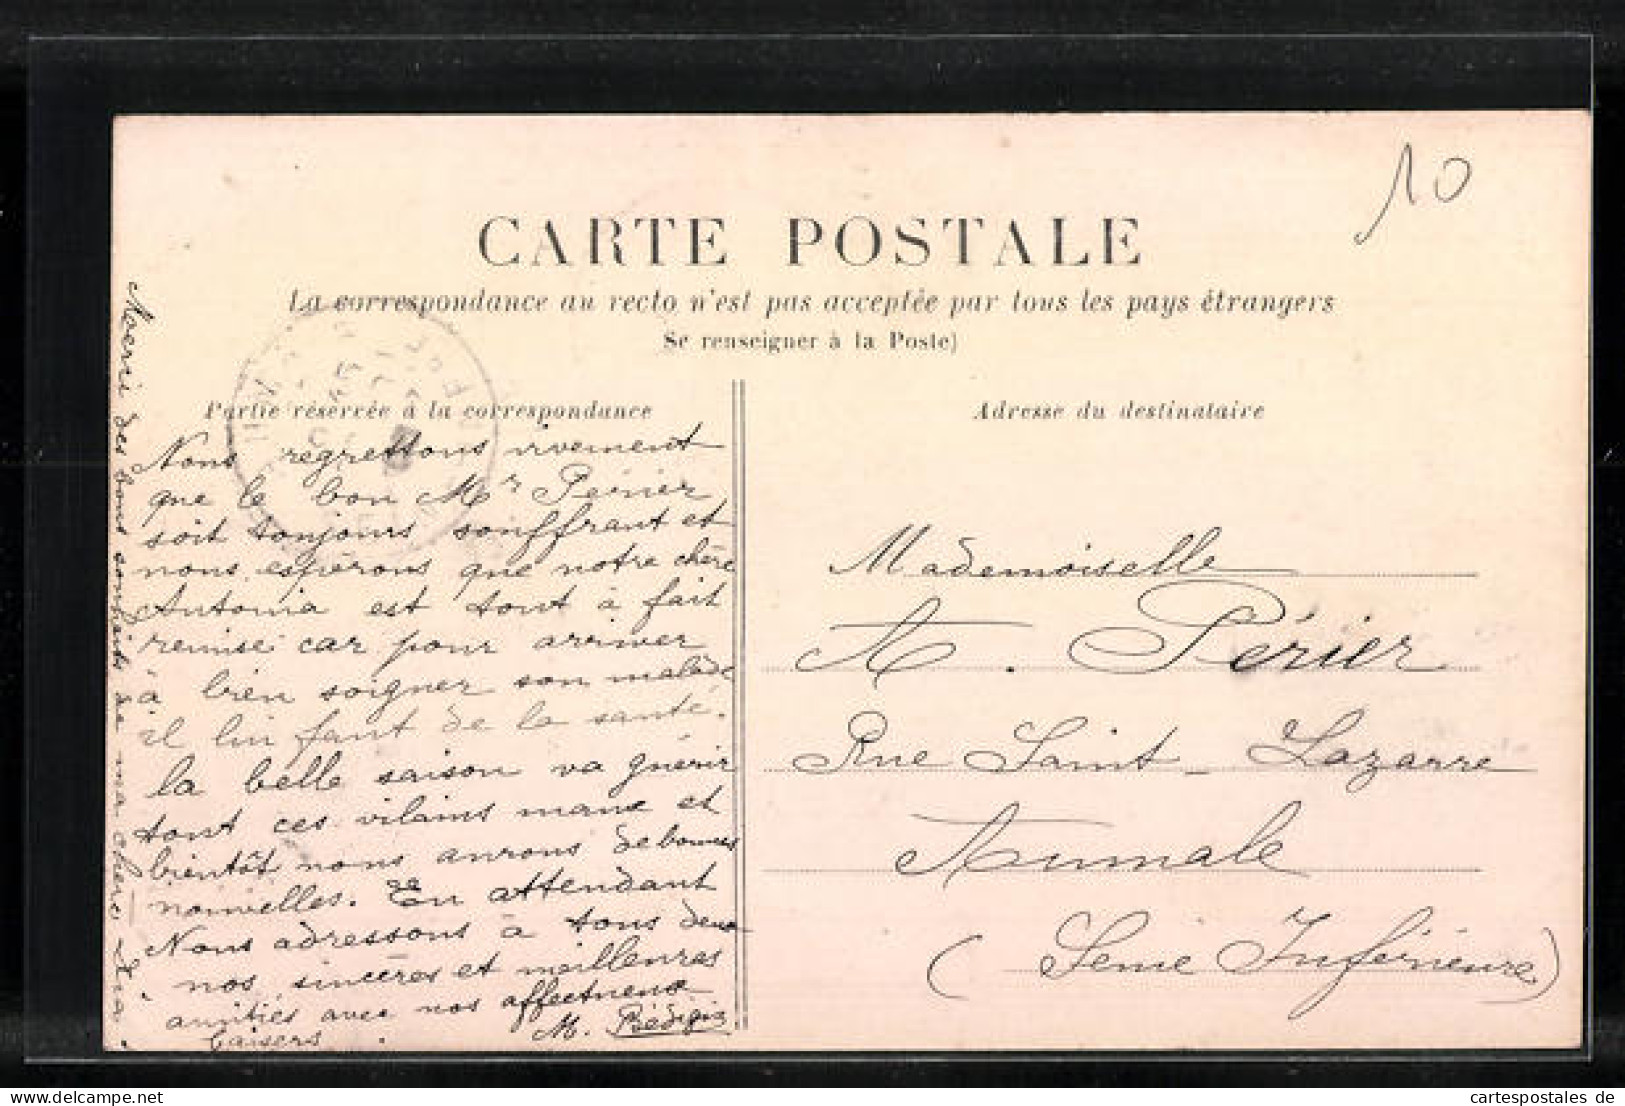 10
CARTE POSTALE
La correspondance au recto n'est pas acceptée par tous les pays étrangers
Se renseigner à la Poste)
Partie réservée à la correspondance
Nous regrettons vivement
que le bon Mr Périer
soit toujours souffrant et
nous espérons que notre chère
Antonia est tout à fait
remise car pour arriver
à bien soigner son malade
il lui faut de la santé.
la belle saison va guérir
tout ces vilains maux et
bientôt nous aurons de bonnes
nouvelles. En attendant
Nous adressons à tous deux
nos sincères et meilleures
amitiés avec nos affectueux
baisers
M.
Merci des bons souhaits de ma chère
Adresse du destinataire
Mademoiselle
A. Périer
Rue Saint-Lazarre
Aumale
(Seine Inférieure)
cartespostales de